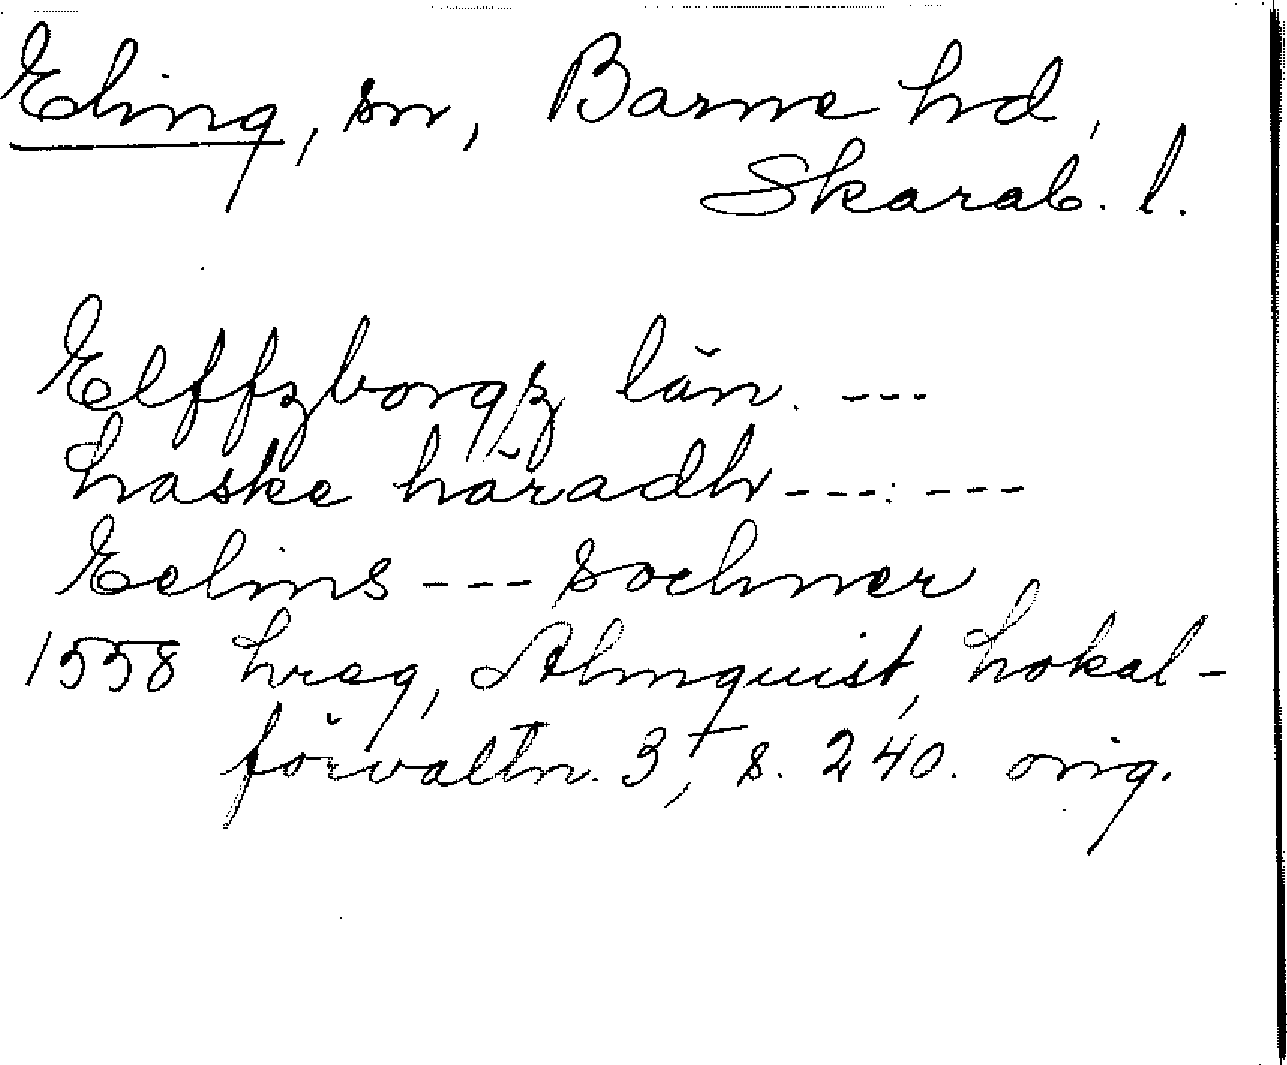 Eling, sn, Barne hd,
Skarab. l.
Elffzborgz län. ---
Laske häradh ---:---
Eelins --- sochner
1558 Lreg, Almquist, Lokal-
förvaltn. 3, s. 240. orig.